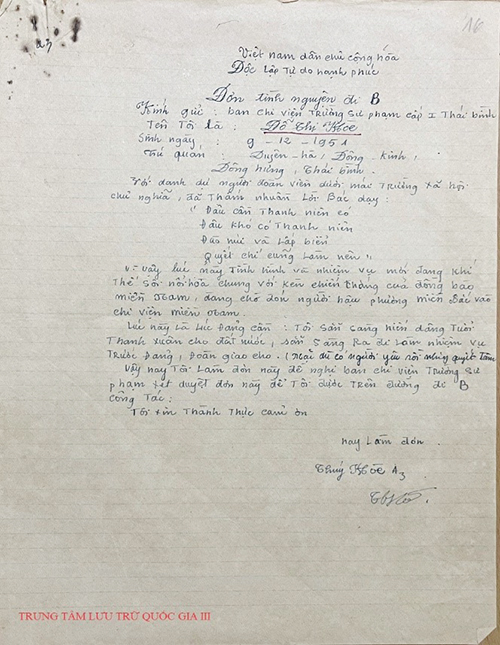 16
a3
Việt nam dân chủ cộng hòa
Độc lập Tự do hạnh phúc
Đơn tình nguyện đi B
Kính gửi : ban chi viện Trường Sư phạm cấp I Thái bình
Tên Tôi là : Đỗ Thị Khòe
Sinh ngày : 9 - 12 - 1951
Trú quán : Duyên hà, Đông Kinh,
Đông hưng, Thái bình.
Với danh dự người đoàn viên dưới mái Trường xã hội
chủ nghĩa, đã Thấm nhuần Lời Bác dạy:
"Đâu cần Thanh niên có
Đâu khó có Thanh niên
Đào núi và Lấp biển
Quyết chí cũng Làm nên"
Vì vậy lúc này Tình hình và nhiệm vụ mới đang khí
Thế sôi nổi hòa chung với kèn chiến Thắng của đồng bào
miền Nam, đang chờ đón người hậu phương miền Bắc vào
chi viện miền Nam.
Lúc này là Lúc Đảng cần : Tôi sẵn sàng hiến dâng Tuổi
Thanh xuân cho đất nước, sẵn sàng Ra đi Làm nhiệm vụ
Trước Đảng, Đoàn giao cho. (Mặc dù có người yêu rồi nhưng quyết tâm
Vậy nay Tôi Làm đơn này đề nghị ban chi viện Trường Sư
phạm xét duyệt đơn này để Tôi được Trên đường đi B
công Tác:
Tôi xin Thành Thực cảm ơn
nay Làm đơn
Thúy Khòe A3
TRUNG TÂM LƯU TRỮ QUỐC GIA III